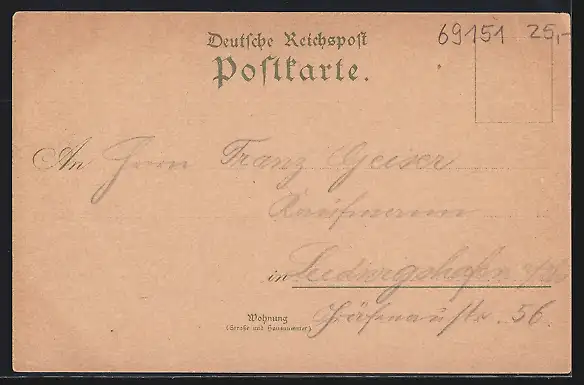 69151 25,-
Deutsche Reichspost
Postkarte.
An Herrn Franz Geiser
Kaufmann
in Ludwigshafen a/Rh
Wohnung
(Straße und Hausnummer)
56.